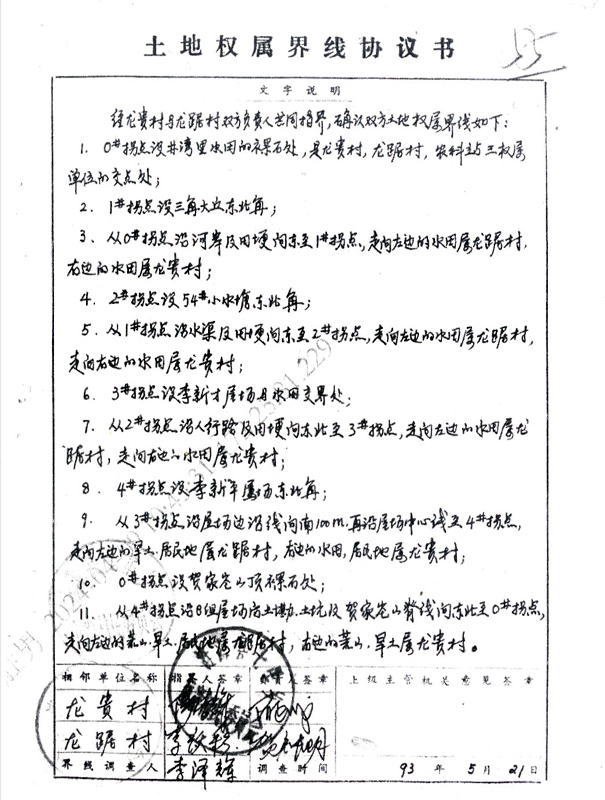 土地权属界线协议书
文字说明
经龙贵村与龙踞村双方负责人共同指界,确认双方土地权属界线如下:
1. 0#拐点设井湾里水田的裸石处,是龙贵村,龙踞村,农科站三权属
单位的交点处;
2. 1#拐点设三角大丘东北角;
3. 从0#拐点沿河岸及田埂向东至1#拐点,走向左边的水田属龙踞村,
右边的水田属龙贵村;
4. 2#拐点设54#小水塘东北角;
5. 从1#拐点沿水渠及田埂向东至2#拐点,走向左边的水田属龙踞村,
走向右边的水田属龙贵村;
6. 3#拐点设李新才屋场与水田交界处;
7. 从2#拐点沿人行路及田埂向东北至3#拐点,走向左边的水田属龙
踞村,走向右边的水田属龙贵村;
8. 4#拐点设李新年屋场东北角;
9. 从3#拐点沿屋场边沿线向南100m,再沿屋场中心线至4#拐点,
走向左边的旱土.居民地属龙踞村,右边的水田,居民地属龙贵村;
10. 0#拐点设贺家仑山顶裸石处;
11. 从4#拐点沿8组屋场后土坎.土坑及贺家仑山脊线向东北至0#拐点,
走向左边的荒山.旱土.居民地属龙踞村,右边的荒山.旱土属龙贵村。
相邻单位名称 指界人签章 负责人签章 上级主管机关意见签章
龙贵村
龙踞村
界线调查人 李泽辉 调查时间 93年5月21日